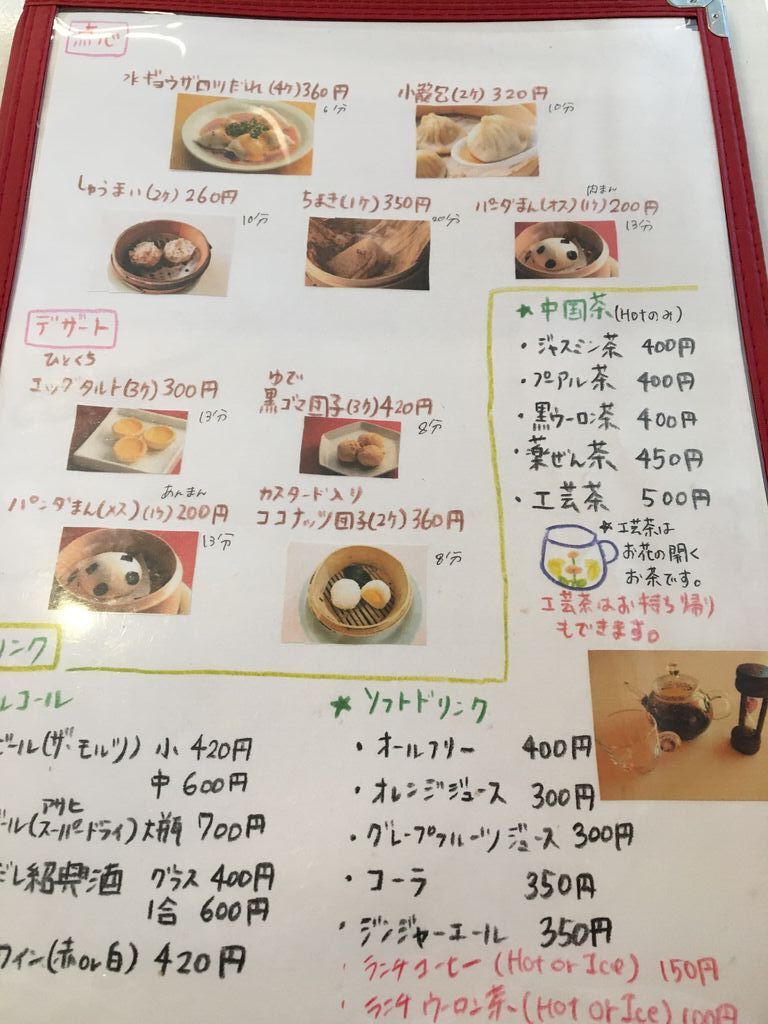 点心
水ギョウザ ロツだれ (4ケ) 360円
6分
小籠包 (2ケ) 320円
10分
しゅうまい (2ケ) 260円
10分
ちまき (1ケ) 350円
20分
肉まん
パンダまん (オス) (1ケ) 200円
13分
デザート
ひとくち
エッグタルト (3ケ) 300円
13分
ゆで
黒ゴマ団子 (3ケ) 420円
8分
あんまん
パンダまん (メス) (1ケ) 200円
13分
カスタード入り
ココナッツ団子 (2ケ) 360円
8分
★中国茶 (Hotのみ)
・ジャスミン茶 400円
・プーアル茶 400円
・黒ウーロン茶 400円
・薬ぜん茶 450円
・工芸茶 500円
★工芸茶は
お花の開く
お茶です。
工芸茶はお持ち帰り
もできます。
リンク
ルコール
ビール (ザ・モルツ) 小 420円
中 600円
アサヒ
ール (スーパードライ) 大瓶 700円
だし紹興酒 グラス 400円
1合 600円
ワイン (赤or白) 420円
★ソフトドリンク
・オールフリー 400円
・オレンジジュース 300円
・グレープフルーツジュース 300円
・コーラ 350円
・ジンジャーエール 350円
・ランチコーヒー (Hot or Ice) 150円
・ランチウーロン茶 (Hot or Ice) 100円